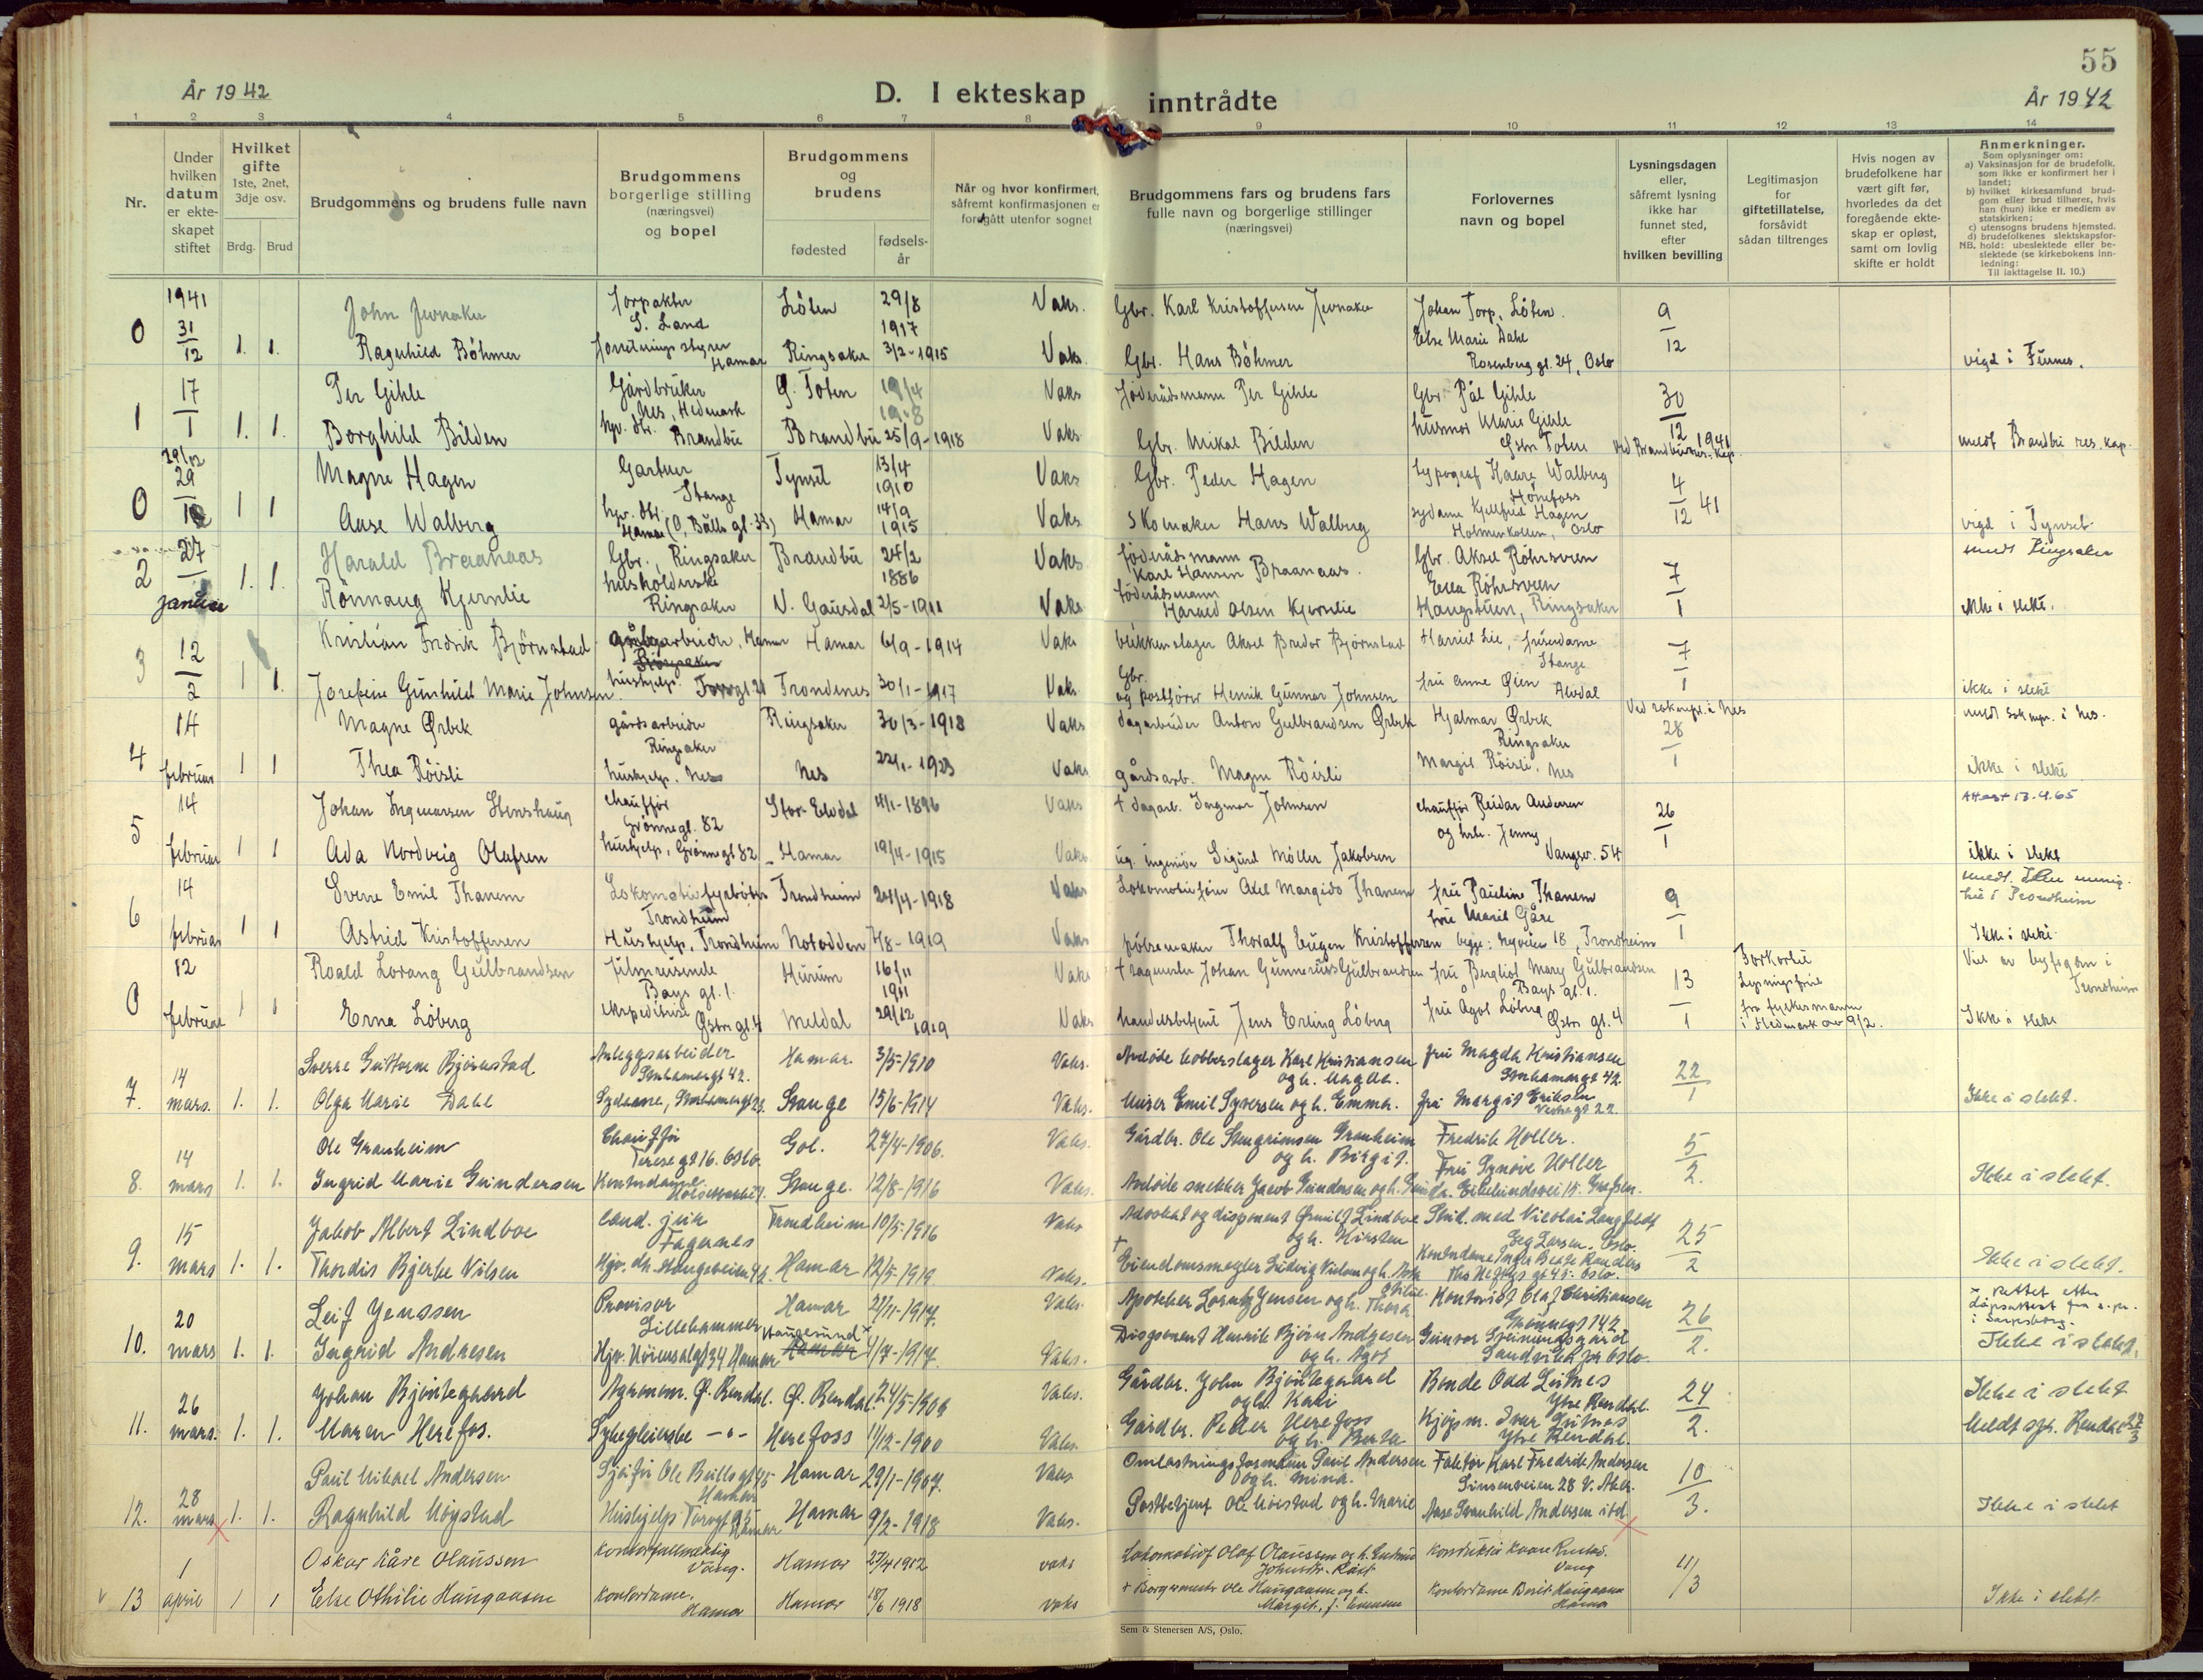 55
År 1942
D. I ekteskap inntrådte
År 1942
1 2 3 4 5 6 7 8 9 10 11 12 13 14
Nr.
Under hvilken datum er ekteskapet stiftet
Hvilket gifte 1ste, 2net, 3dje osv.
Brdg. Brud
Brudgommens og brudens fulle navn
Brudgommens borgerlige stilling (næringsvei) og bopel
Brudgommens og brudens
fødested
fødselsår
Når og hvor konfirmert, såfremt konfirmasjonen er foregått utenfor sognet
Brudgommens fars og brudens fars fulle navn og borgerlige stillinger (næringsvei)
Forlovernes navn og bopel
Lysningsdagen eller, såfremt lysning ikke har funnet sted, efter hvilken bevilling
Legitimasjon for giftetillatelse, forsåvidt sådan tiltrenges
Hvis nogen av brudefolkene har vært gift før, hvorledes da det foregående ekteskap er opløst, samt om lovlig skifte er holdt
Anmerkninger.
Som oplysninger om:
a) Vaksinasjon for de brudefolk, som ikke er konfirmert her i landet;
b) hvilket kirkesamfund brudgom eller brud tilhører, hvis han (hun) ikke er medlem av statskirken;
c) utensogns brudens hjemsted.
d) brudefolkenes slektskapsforhold: ubeslektede eller beslektede (se kirkebokens innledning:
NB.
Til iakttagelse II. 10.)
0 1941 31/12 1. 1.
John Jevnaker forpakter S. Land Löten 29/8 1917 Vaks. Gbr. Karl Kristoffersen Jevnaker Johan Torp, Löten. 9/12
Ragnhild Böhmer forretningsstyrer Hamar Ringsaker 3/2-1915 Vaks. Gbr. Hans Böhmer Else Marie Dahl Rosenberg gt. 24, Oslo vigd i Furnes.
1 17/1 1. 1.
Per Gihle Gårdbruker Nes, Hedmark Ö. Toten 19/4 1908 Vaks Föderådsmann Per Gihle Gbr. Pål Gihle 30/12 1941
Borghild Bilden hgv. dtr. Brandbu Brandbu 25/9-1918 Vaks. Gbr. Mikal Bilden husmor Marie Gihle Östre Toten meldt Brandbu res. kap.
0 29/12 29
Magne Hagen Gartner Stange Tynset 13/4 1910 Vaks Gbr. Peder Hagen typograf Kaare Walberg Hönefoss 4/12 41
1 1 Aase Walberg Hamar Hamar 14/9 1915 Vaks Skomaker Hans Walberg sydame Kjellfrid Hagen Holmenkollen, Oslo vigd i Tynset
2 27 januar 1. 1.
Harald Braanaas Gbr., Ringsaker Brandbu 24/2 1886 Vaks föderådsmann Karl Hansen Braanaas. Gbr. Aksel Röhrsveen 7/1 meldt Ringsaker
Rönnaug Kjernlie husholderske Ringsaker N. Gausdal 2/5-1911 Vaks föderådsmann Harald Olsen Kjernlie Haugstuen, Ringsaker ikke i slekt.
3 12/2 1 1
Kristian Fredrik Björnstad Hamar Hamar 6/9-1914 Vaks blikkenslager Aksel Bredor Björnstad frisördame Stange 7/1
Josefine Gunhild Marie Johnsen hushjelp. Torvgt. 21 Trondenes 30/1-1917 Vaks Gbr. og postförer Henrik Gunnar Johnsen fru Anne Öien Alvdal ikke i slekt
4 14 februar 1 1
Magne Ørbek gårdsarbeider Ringsaker Ringsaker 30/3-1918 Vaks dagarbeider Anton Gulbrandsen Ørbek Hjalmar Ørbek Ringsaker 28/1 meldt sokenpr. i Nes.
Thea Röisli hushjelp. Nes Nes 22/1-1923 Vaks gårdsarb. Magnus Röisli Margit Röisli, Nes ikke i slekt
5 14 februar 1 1
Johan Ingmarsen Stenshaug chaufför Grönnegt. 82 Stor-Elvdal 4/1-1896 Vaks + dagarb. Ingmar Johnsen chaufför Reidar Andersen 26/1 Attest 13.4.65
Ada Nordveig Olafsen hushjelp, Grönnegt 82 Hamar 19/4-1915 Vaks ug. ingeniör Sigurd Möller Jakobsen og hstr. Jenny Vangsv. 54 ikke i slekt
6 14 februar 1 1
Sverre Emil Thanem Lokomotivfyrböter Trondheim Trondheim 24/4-1918 Vaks Lokomotivförer Axel Margido Thanem fru Pauline Thanem 9/1 hed i Trondheim
Astrid Kristoffersen Hushjelp, Trondheim Notodden 7/8-1919 Vaks pölsemaker Thoralf Eugen Kristoffersen fru Marit Gåre begge: Nyveien 18, Trondheim Ikke i slekt
0 12 februar 1 1
Roald Lorang Gulbrandsen filmreisende Bays gt. 1. Hurum 16/11 1911 Vaks + Johan Gunnerius Gulbrandsen fru Bergliot Mary Gulbrandsen Bays gt. 1. 13/1 Forkortet lysningsfrist fra fylkesmann i Hedmark av 9/2. Viet av byfogden i Trondheim
Erna Löberg ekspeditrise Östre gt. 4 Meldal 29/12 1919 Vaks handelsbetjent Jens Erling Löberg fru Agot Löberg Östre gt. 4 Ikke i slekt
7. 14 mars. 1. 1.
Sverre Guttorm Bjørnstad Anleggsarbeider Storhamargt 42. Hamar. 3/5-1910 Vaks. Avdöde kobberslager Karl Kristiansen og h. Magda. Fru Magda Kristiansen Storhamargt 42. 22/1
Olga Marie Dahl Sydame, Storhamargt 23. Stange 15/6-1914 Vaks. Murer Emil Syversen og h. Emma. Fru Margit Eriksen Vestregt 22. Ikke i slekt.
8. 14 mars 1. 1.
Ole Granheim Chauffør Teresegt 16. Oslo. Gol. 27/4-1906. Vaks. Gårdbr. Ole Stengrimsen Granheim og h. Birgit. Fredrik Holler. 5/2.
Ingrid Marie Gundersen Kontordame Stange. 12/8-1916 Vaks. Avdöde snekker Jacob Gundersen Fru Synöve Holler Ikke i slekt.
9. 15 mars 1. 1.
Jakob Albert Lindboe cand. jur. Fagernes Trondheim 10/5-1916 Vaks Advokat og disponent Lindboe og h. Kirsten Stud. med Nicolai Langfeldt Oslo. 25/2
Thordis Bjerke Nilsen Hjv. dt. Stangeveien Hamar 12/5-1919 Vaks. + Eiendomsmegler Ludvig Nielsen Oslo. Ikke i slekt.
10. 20 mars 1. 1.
Leif Jenssen Provisor Lillehammer Hamar 21/11-1917. Vaks. Apotheker Lorentz Jensen og h. Thora Kontorist Olaf Christiansen Grönnegt 142. 26/2. x rettet etter dåpsattest fra s.pr. i Sarpsborg.
Ingrid Andresen Hamar Haugesund x Hamar 4/7-1917. Vaks. Disponent Henrik Björn Andresen og h. Agot Gunvor Sandvika pr Oslo. Ikke i slekt.
11. 26 mars. 1. 1.
Johan Bjøntegaard Agronom. Ø. Rendal. Ø. Rendal. 24/5-1904 Vaks. Gårdbr. John Bjøntegaard og h. Kari Bonde Odd Leitnes Ytre Rendal. 24/2. Ikke i slekt
Maren Herefos. Sykepleierske -"- Herefoss 11/12-1900 Vaks. Gårdbr. Peder Herefoss og h. Berte Kjøpm. Ivar Ytre Rendal. Meldt spr. Rendal 27/3
12. 28 mars 1. 1.
Paul Mikael Andersen Sjåfør Ole Bullsgt 45 Hamar Hamar 29/1-1907. Vaks Omlastningsformann Paul Andersen og h. Mina. Faktor Karl Fredrik Andersen Sinsenveien 28 V. Aker. 10/3.
Ragnhild Moystad Hushjelp Torvgt 95 Hamar Hamar 9/2-1918 Vaks. Postbetjent Ole Moistad og h. Marie Aase Svanhild Andersen istd. Ikke i slekt
13 1 april 1 1
Oskar Kåre Olaussen Kontorfullmektig Vang. Hamar 27/4 1912 vaks Lokomotivf Olaf Olaussen Konduktør Kaare Vang 11/3
Else Othilie Haugaasen Kontordame, Hamar Hamar 18/6 1918 vaks + Borgermester Ole Haugaasen og h. Margit, f. Kontordame Berit Haugaasen Hamar Ikke i slekt.
Sem & Stenersen A/S, Oslo.